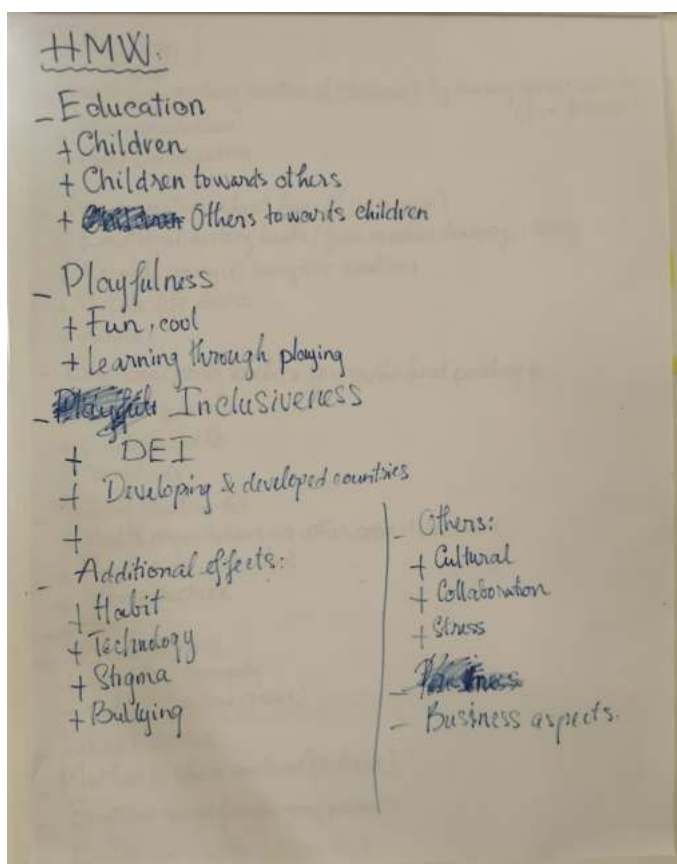 HMW.
- Education
+ Children
+ Children towards others
+ Others towards children
- Playfulness
+ Fun, cool
+ Learning through playing
- Inclusiveness
+ DEI
+ Developing & developed countries
+
- Additional effects:
+ Habit
+ Technology
+ Stigma
+ Bullying
- Others:
+ Cultural
+ Collaboration
+ Stress
-
- Business aspects.